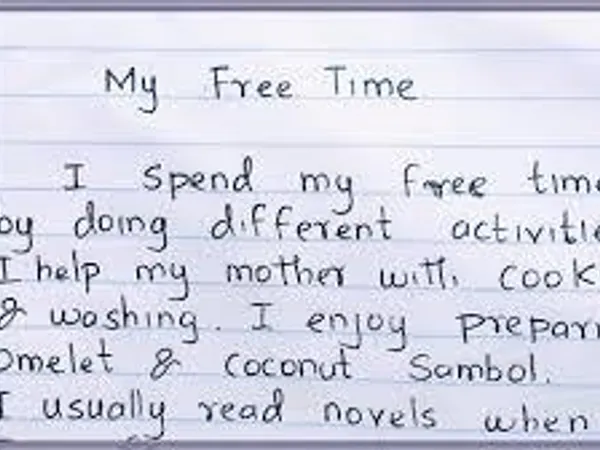 My Free Time
I spend my free time
by doing different activitie
I help my mother with cook
& washing. I enjoy prepar
Omelet & coconut Sambol.
I usually read novels when